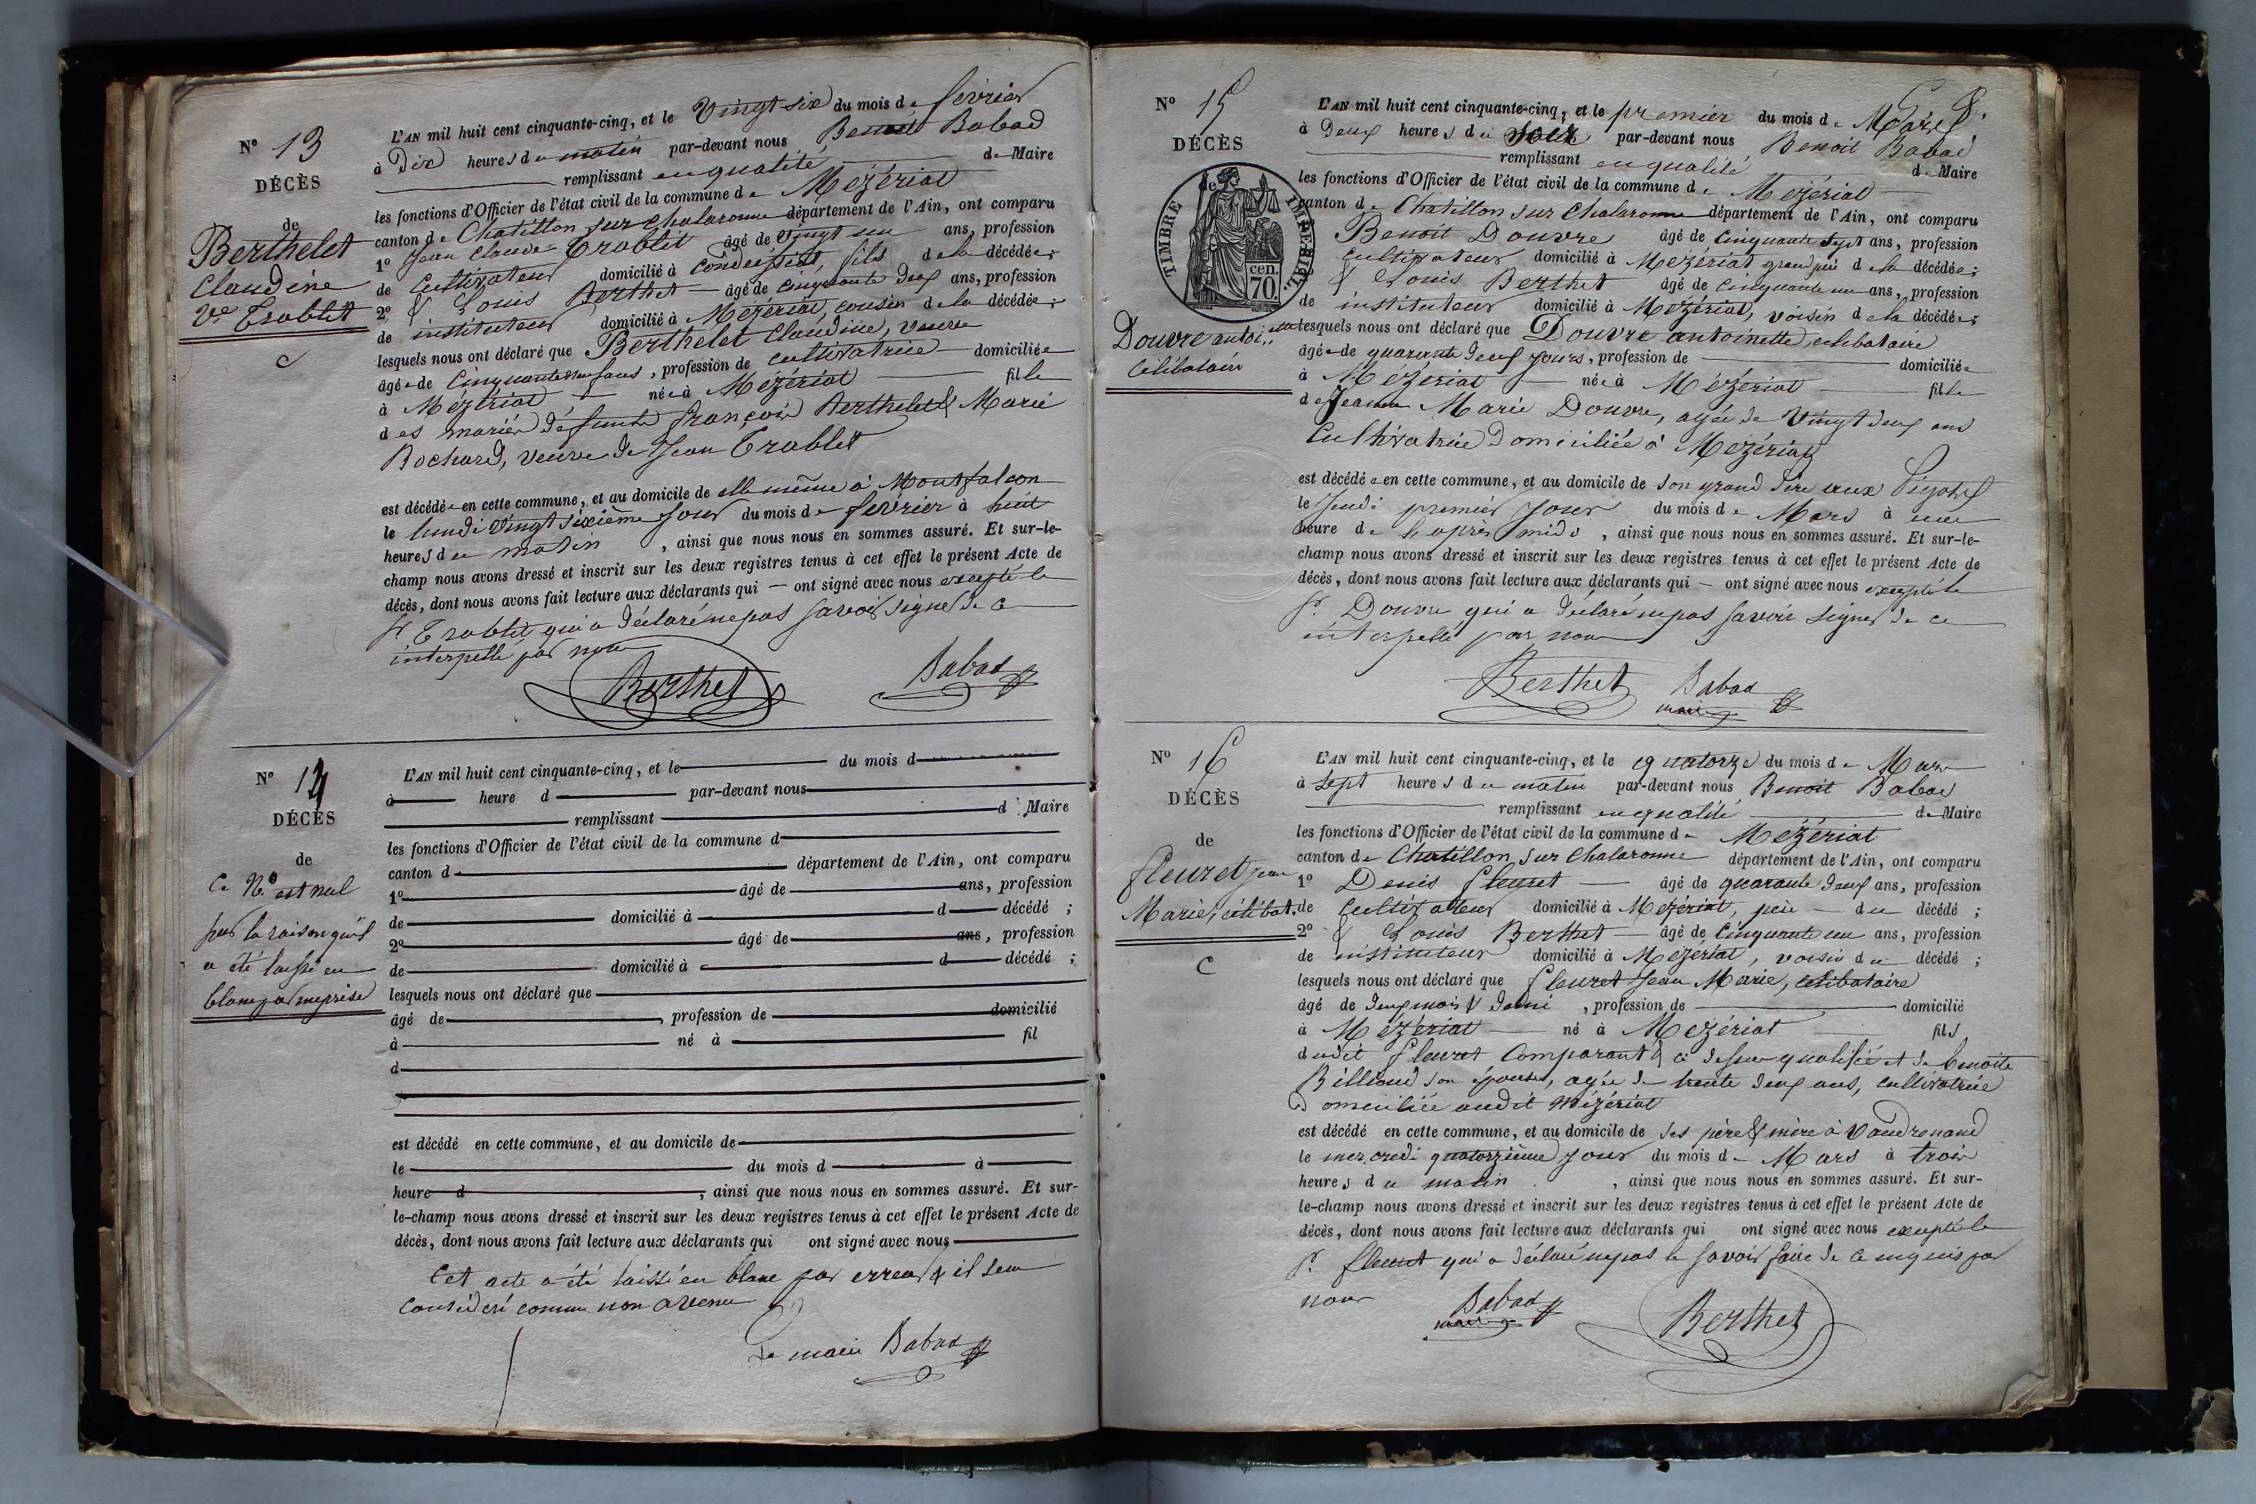 N° 13
DÉCÈS
de
Berthelet
Claudine
Ve Trablit
C
L'AN mil huit cent cinquante-cinq, et le Vingt six du mois de février
à Dix heures du matin par-devant nous Benoit Babad
remplissant en qualité de Maire
les fonctions d'Officier de l'état civil de la commune de Mezériat
canton de Chatillon sur Chalaronne département de l'Ain, ont comparu
1° Jean Claude Trablit âgé de vingt un ans, profession
de Cultivateur domicilié à Condeissiat, fils de la décédée;
2° & Louis Berthet âgé de cinquante deux ans, profession
de instituteur domicilié à Mezériat, cousin de la décédée;
lesquels nous ont déclaré que Berthelet Claudine, veuve
âgée de Cinquante ans, profession de cultivatrice domiciliée
à Mézériat née à Mézériat fille
des mariés défunts françois Berthelet & Marie
Bochard, veuve de Jean Trablit
est décédée en cette commune, et au domicile de elle même à Montfalcon
le lundi vingt sixième jour du mois de février à huit
heures du matin, ainsi que nous nous en sommes assuré. Et sur-le-
champ nous avons dressé et inscrit sur les deux registres tenus à cet effet le présent Acte de
décès, dont nous avons fait lecture aux déclarants qui — ont signé avec nous excepté le
Sr Trablit qui a déclaré ne pas savoir signer de ce
interpellé par nous
Berthet Babad
N° 14
DÉCÈS
de
Ce N° est nul
par la raison qu'il
a été laissé en
blanc par méprise
L'AN mil huit cent cinquante-cinq, et le du mois d
à heure d par-devant nous
remplissant d Maire
les fonctions d'Officier de l'état civil de la commune d
canton d département de l'Ain, ont comparu
1° âgé de ans, profession
de domicilié à d décédé ;
2° âgé de ans, profession
de domicilié à d décédé ;
lesquels nous ont déclaré que
âgé de , profession de domicilié
à né à fil
d
est décédé en cette commune, et au domicile de
le du mois d à
heure d , ainsi que nous nous en sommes assuré. Et sur-
le-champ nous avons dressé et inscrit sur les deux registres tenus à cet effet le présent Acte de
décès, dont nous avons fait lecture aux déclarants qui ont signé avec nous
Cet acte a été laissé en blanc par erreur & il sera
considéré comme non avenu
Le maire Babad
N° 15
DÉCÈS
de
TIMBRE IMPÉRIAL.
cen.
70
Douvre antoi.tte
Célibataire
L'AN mil huit cent cinquante-cinq, et le premier du mois de Mars
à Deux heures du soir par-devant nous Benoit Babad
remplissant en qualité de Maire
les fonctions d'Officier de l'état civil de la commune de Mezériat
canton de Chatillon sur Chalaronne département de l'Ain, ont comparu
Benoit Douvre âgé de cinquante sept ans, profession
cultivateur domicilié à Mezériat grand père de la décédée;
& Louis Berthet âgé de cinquante un ans, profession
de instituteur domicilié à Mezériat, voisin de la décédée;
lesquels nous ont déclaré que Douvre antoinette, celibataire
âgée de quarante deux jours, profession de domiciliée
à Mézériat née à Mézériat fille
de Jeanne Marie Douvre, agée de Vingt deux ans
Cultivatrice Domiciliée à Mezériat
est décédée en cette commune, et au domicile de son grand père aux
le Jeudi premier jour du mois de Mars à une
heure de l'après midi, ainsi que nous nous en sommes assuré. Et sur-le-
champ nous avons dressé et inscrit sur les deux registres tenus à cet effet le présent Acte de
décès, dont nous avons fait lecture aux déclarants qui — ont signé avec nous excepté le
Sr Douvre qui a déclaré ne pas savoir signer de ce
interpellé par nous
Berthet Babad
maire
N° 16
DÉCÈS
de
fleuret Jean
Marie, célibat.
C
L'AN mil huit cent cinquante-cinq, et le quatorze du mois de Mars
à sept heures du matin par-devant nous Benoit Babad
remplissant en qualité de Maire
les fonctions d'Officier de l'état civil de la commune de Mézériat
canton de Chatillon sur Chalaronne département de l'Ain, ont comparu
1° Denis fleuret âgé de quarante deux ans, profession
de Cultivateur domicilié à Mezériat, père du décédé ;
2° & Louis Berthet âgé de Cinquante un ans, profession
de instituteur domicilié à Mezériat, voisin du décédé ;
lesquels nous ont déclaré que fleuret Jean Marie, célibataire
âgé de deux mois & demi, profession de domicilié
à Mézériat né à Mezériat fils
dudit fleuret Comparant & ci dessus qualifié et de benoite
Billioud son épouse, agée de trente deux ans, cultivatrice
Domiciliée audit Mézériat
est décédé en cette commune, et au domicile de ses père & mère à Vaudrenand
le mercredi quatorzième jour du mois de Mars à trois
heures du matin, ainsi que nous nous en sommes assuré. Et sur-
le-champ nous avons dressé et inscrit sur les deux registres tenus à cet effet le présent Acte de
décès, dont nous avons fait lecture aux déclarants qui ont signé avec nous excepté le
Sr fleuret qui a déclaré ne pas le savoir faire de ce enquis par
nous
Babad
maire Berthet